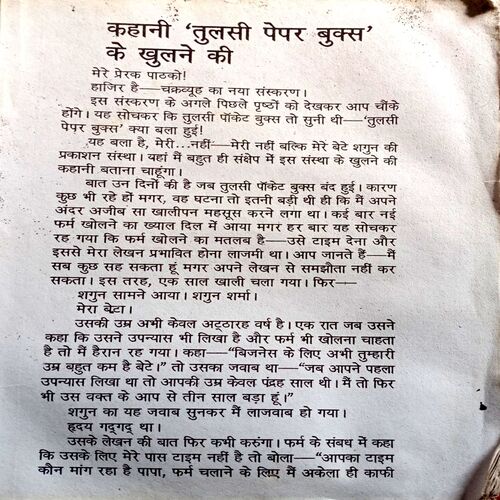 कहानी ‘तुलसी पेपर बुक्स’
के खुलने की
मेरे प्रेरक पाठको!
हाजिर है—चक्रव्यूह का नया संस्करण।
इस संस्करण के अगले पिछले पृष्ठों को देखकर आप चौंके
होंगे। यह सोचकर कि तुलसी पॉकेट बुक्स तो सुनी थी—‘तुलसी
पेपर बुक्स’ क्या बला हुई!
यह बला है, मेरी...नहीं—मेरी नहीं बल्कि मेरे बेटे शगुन की
प्रकाशन संस्था। यहां मैं बहुत ही संक्षेप में इस संस्था के खुलने की
कहानी बताना चाहूंगा।
बात उन दिनों की है जब तुलसी पॉकेट बुक्स बंद हुई। कारण
कुछ भी रहे हों मगर, वह घटना तो इतनी बड़ी थी ही कि मैं अपने
अंदर अजीब सा खालीपन महसूस करने लगा था। कई बार नई
फर्म खोलने का ख्याल दिल में आया मगर हर बार यह सोचकर
रह गया कि फर्म खोलने का मतलब है—उसे टाइम देना और
इससे मेरा लेखन प्रभावित होना लाजमी था। आप जानते हैं—मैं
सब कुछ सह सकता हूं मगर अपने लेखन से समझौता नहीं कर
सकता। इस तरह, एक साल खाली चला गया। फिर—
शगुन सामने आया। शगुन शर्मा।
मेरा बेटा।
उसकी उम्र अभी केवल अट्ठारह वर्ष है। एक रात जब उसने
कहा कि उसने उपन्यास भी लिखा है और फर्म भी खोलना चाहता
है तो मैं हैरान रह गया। कहा—“बिजनेस के लिए अभी तुम्हारी
उम्र बहुत कम है बेटे।” तो उसका जवाब था—“जब आपने पहला
उपन्यास लिखा था तो आपकी उम्र केवल पंद्रह साल थी। मैं तो फिर
भी उस वक्त के आप से तीन साल बड़ा हूं।”
शगुन का यह जवाब सुनकर मैं लाजवाब हो गया।
हृदय गद्‌गद्‌ था।
उसके लेखन की बात फिर कभी करुंगा। फर्म के संबध में कहा
कि उसके लिए मेरे पास टाइम नहीं है तो बोला—“आपका टाइम
कौन मांग रहा है पापा, फर्म चलाने के लिए मैं अकेला ही काफी